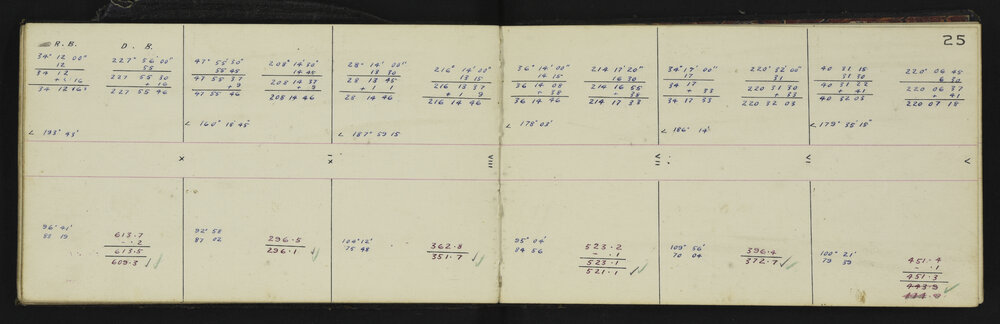 25
R.B. D. B.
34° 12' 00" 227° 56' 00"
12 55
34 12 227 55 30
+ 16
34 12 16 227 55 46
∠ 193° 43'
47° 55' 30" 208° 14' 30"
55 45 14 45
47 55 37 208 14 37
+ 9 + 9
47 55 46 208 14 46
∠ 160° 18' 45"
28° 14' 00" 216° 14' 00"
13 30 13 15
28 13 45 216 13 37
+ 1 1 + 1 9
28 14 46 216 14 46
∠ 187° 59' 15
36° 14' 00" 214° 17' 20"
14 15 16 30
36 14 08 214 16 55
+ 38 + 38
36 14 46 214 17 33
∠ 178° 03'
34° 17' 00" 220° 32' 00"
17 31
34 17 220 31 30
+ 33 + 33
34 17 33 220 32 03
∠ 186° 14'
40 31 15 220° 06 45
31 30 6 30
40 31 22 220 06 37
+ 41 + 41
40 32 03 220 07 18
∠ 179° 35' 15"
X
IX
VIII
VII
VI
V
96° 41'
83 19
613.7
- .2
613.5
609.3
92° 58
87 02
296.5
296.1
104° 12'
75 48
362.8
351.7
95° 04'
84 56
523.2
- .1
523.1
521.1
109° 56'
70 04
396.4
372.7
100° 21'
79 39
451.4
- .1
451.3
443.9